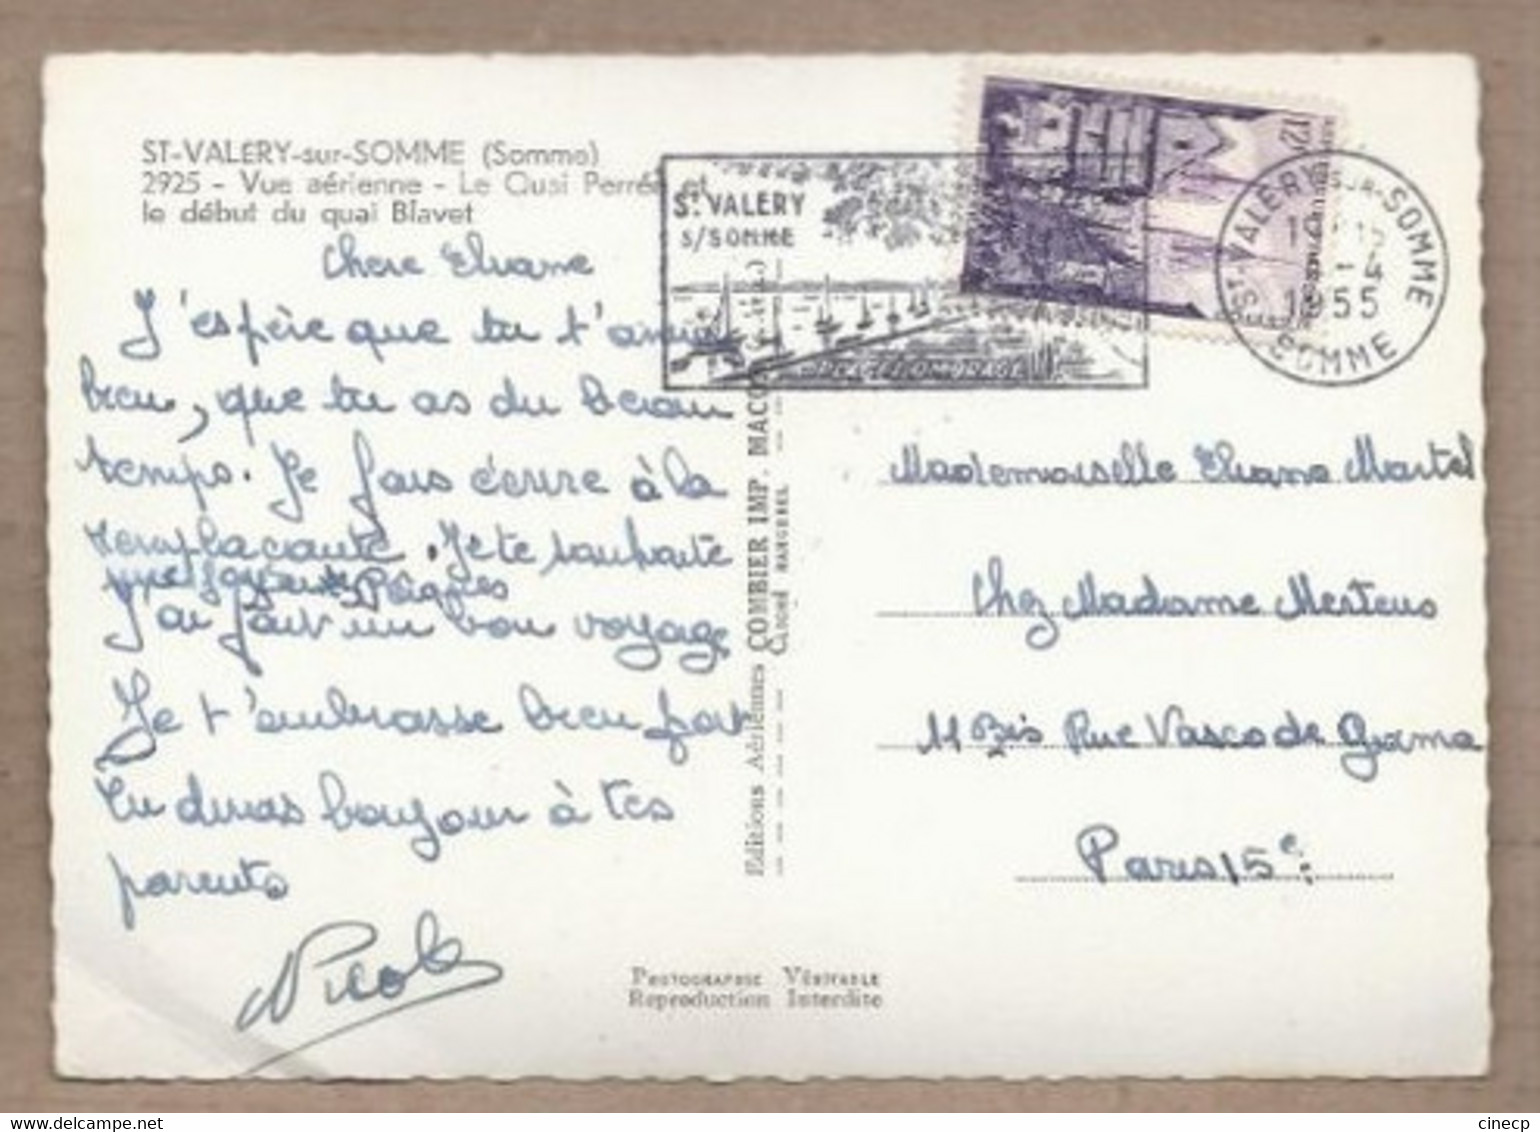 ST-VALÉRY-sur-SOMME (Somme)
2925 - Vue aérienne - Le Quai Perrée et
le début du quai Blavet
Chere Eliane
J'espère que tu t'amuse
bien, que tu as du beau
temps. Je fais écrire à la
remplaçante. Je te souhaite
Pâques
J'ai fait un bon voyage
Je t'embrasse bien fort
Tu diras bonjour à tes
parents
Nicole
St VALERY
s/SOMME
ST-VALÉRY-SUR-SOMME
1955
SOMME
12F
Editions Aériennes COMBIER IMP. MACON
Mademoiselle Eliane Martel
Chez Madame Mertens
11 Bis Rue Vasco de Gama
Paris 15e
PHOTOGRAPHIE VÉRITABLE
Reproduction Interdite
delcampe.net
cinecp